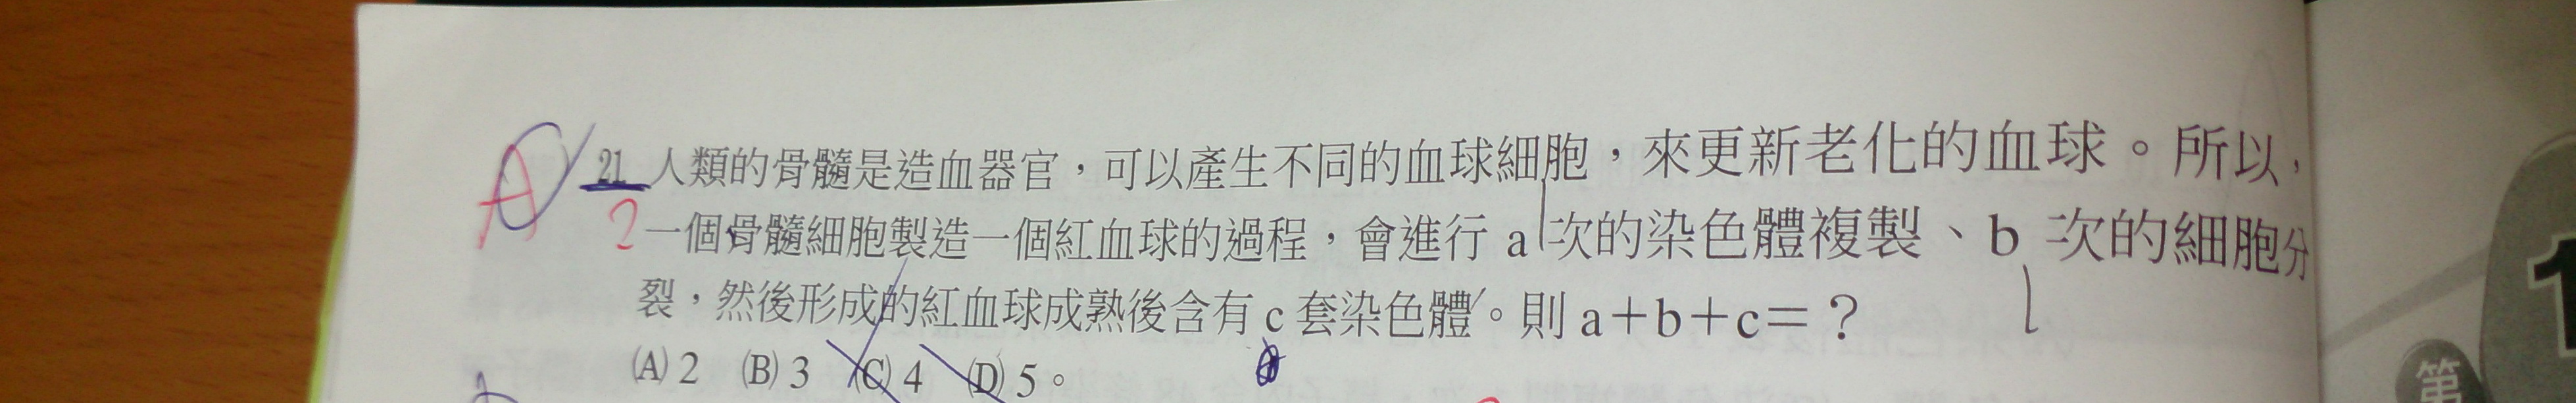 A 21 人類的骨髓是造血器官，可以產生不同的血球細胞，來更新老化的血球。所以，
2 一個骨髓細胞製造一個紅血球的過程，會進行 a 次的染色體複製、b 次的細胞分
裂，然後形成的紅血球成熟後含有 c 套染色體。則 a＋b＋c＝？
(A) 2 (B) 3 (C) 4 (D) 5。
1
第